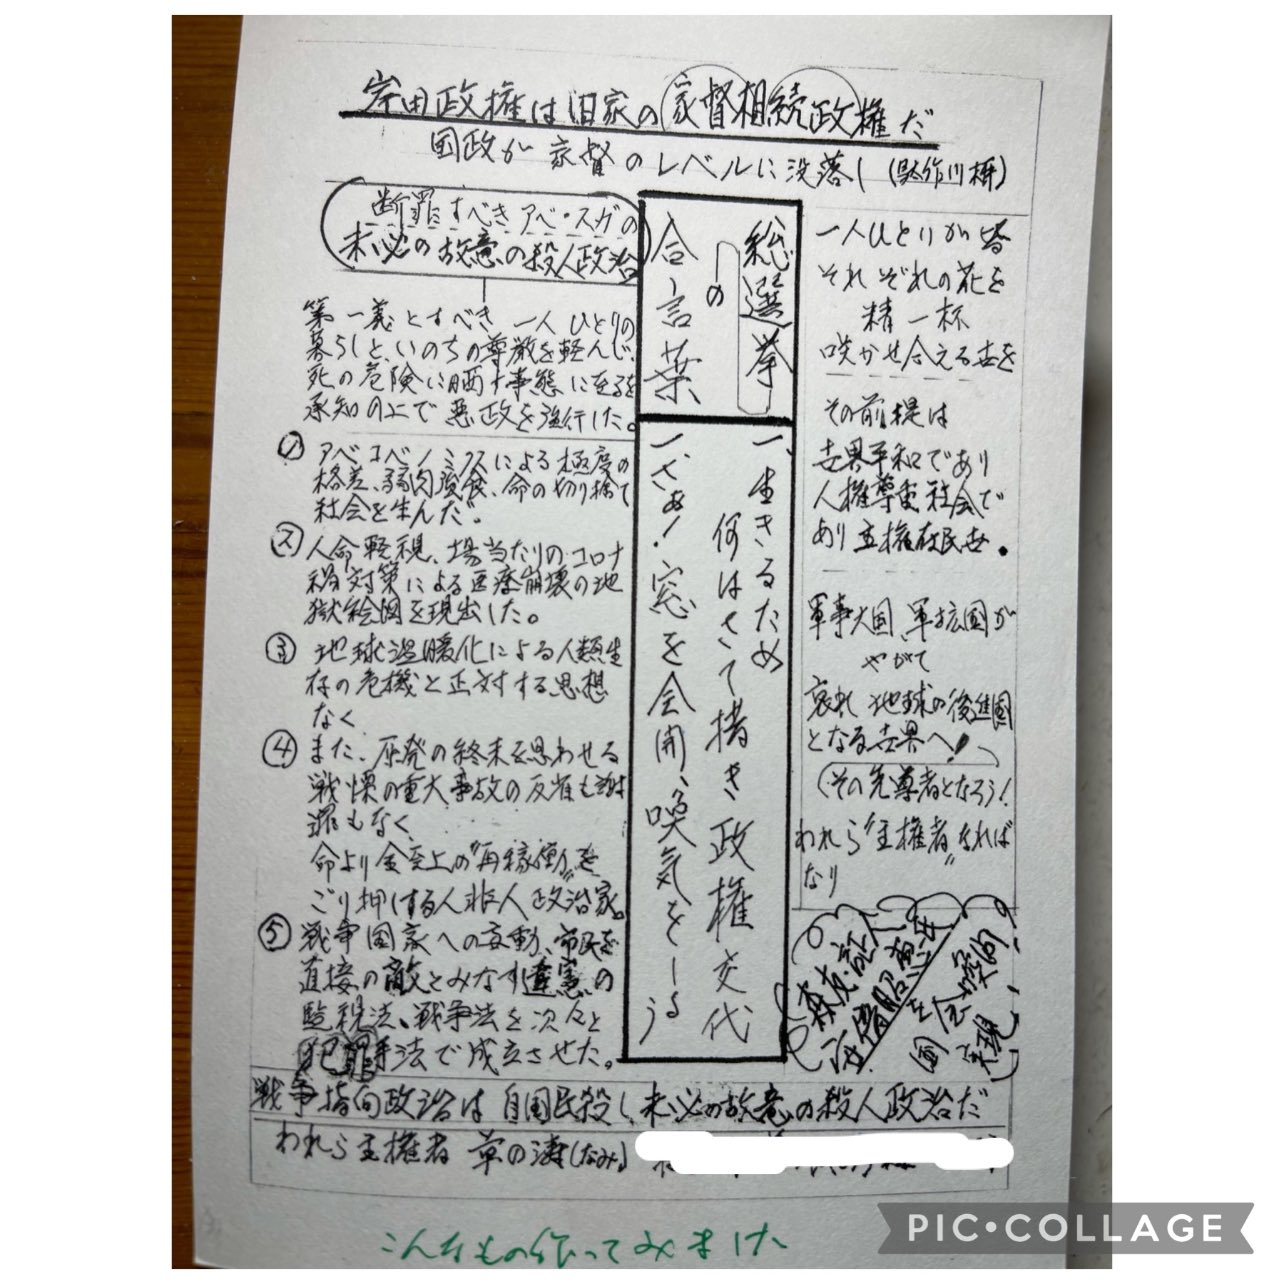 岸田政権は旧家の家督相続政権だ
国政が家督のレベルに没落し(駄作川柳)
総選挙
の
合言葉
一、生きるため
何はさて措き政権交代
一、さぁ!窓を全開、喚気をしよう
一人ひとりが皆
それぞれの花を
精一杯
咲かせ合える世を
その前提は
世界平和であり
人権尊重社会で
あり主権在民也。
軍事大国 軍拡国が
やがて
哀れ 地球の後進国
となる世界へ!
(その先導者となろう!
われら"主権者"なれば
なり
森友・証人
安倍昭恵
国会
実現
断罪すべきアベ・スガの
未必の故意の殺人政治
第一義とすべき一人ひとりの
暮らしと、いのちの尊厳を軽んじ、
死の危険に晒す事態に至るを
承知の上で悪政を強行した。
① アベコベノミクスによる極度の
格差、弱肉強食、命の切り捨て
社会を生んだ。
② 人命軽視、場当たりのコロナ
禍対策による医療崩壊の地
獄絵図を現出した。
③ 地球温暖化による人類生
存の危機と正対する思想
なく
④ また、原発の終末を思わせる
戦慄の重大事故の反省も謝
罪もなく
命より金至上の"再稼働"を
ごり押しする人非人政治家。
⑤ 戦争国家への妄動、市民を
直接の敵とみなす違憲の
監視法、戦争法を次々と
犯罪手法で成立させた。
戦争指向政治は自国民殺し、未必の故意の殺人政治だ
われら主権者 草の涛(なみ)
こんなもの作ってみました
PIC•COLLAGE